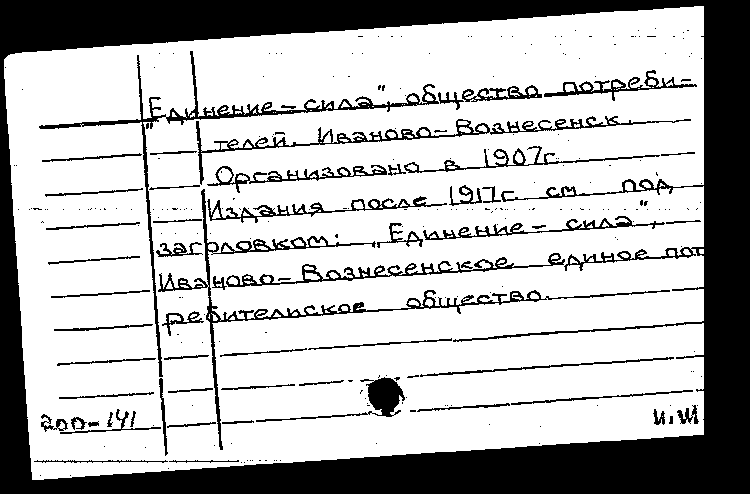 „Единение – сила", общество потреби-
телей. Иваново-Вознесенск.
Организовано в 1907г.
Издания после 1917г. см. под
заголовком: „Единение – сила",
Иваново-Вознесенское единое пот
ребительское общество.
200-141
И.Ш